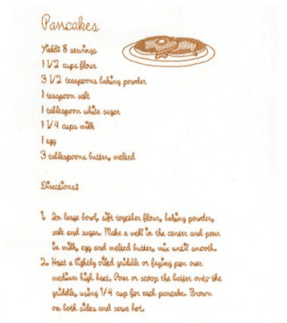 Pancakes
Yields 8 servings
1 1/2 cups flour
3 1/2 teaspoons baking powder
1 teaspoon salt
1 tablespoon white sugar
1 1/4 cups milk
1 egg
3 tablespoons butter, melted
Directions:
1. In large bowl, sift together flour, baking powder,
salt and sugar. Make a well in the center and pour
in milk, egg and melted butter, mix until smooth.
2. Heat a lightly oiled griddle or frying pan over
medium high heat. Pour or scoop the batter onto the
griddle, using 1/4 cup for each pancake. Brown
on both sides and serve hot.